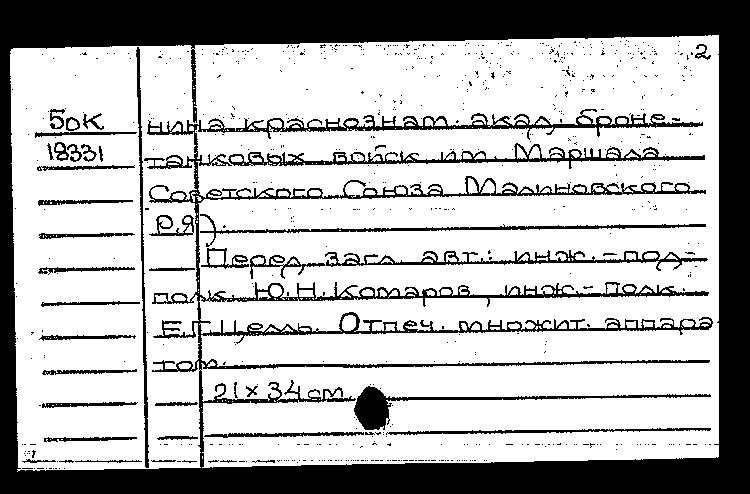 2
БОК нина краснознам. акад. броне-
18331 танковых войск им. Маршала
Советского Союза Малиновского
Р.Я).
Перед загл. авт.: инж.-под-
полк. Ю.Н.Комаров, инж.-полк.
Е.Г.Целль. Отпеч. множит. аппара
том.
21х34 см.